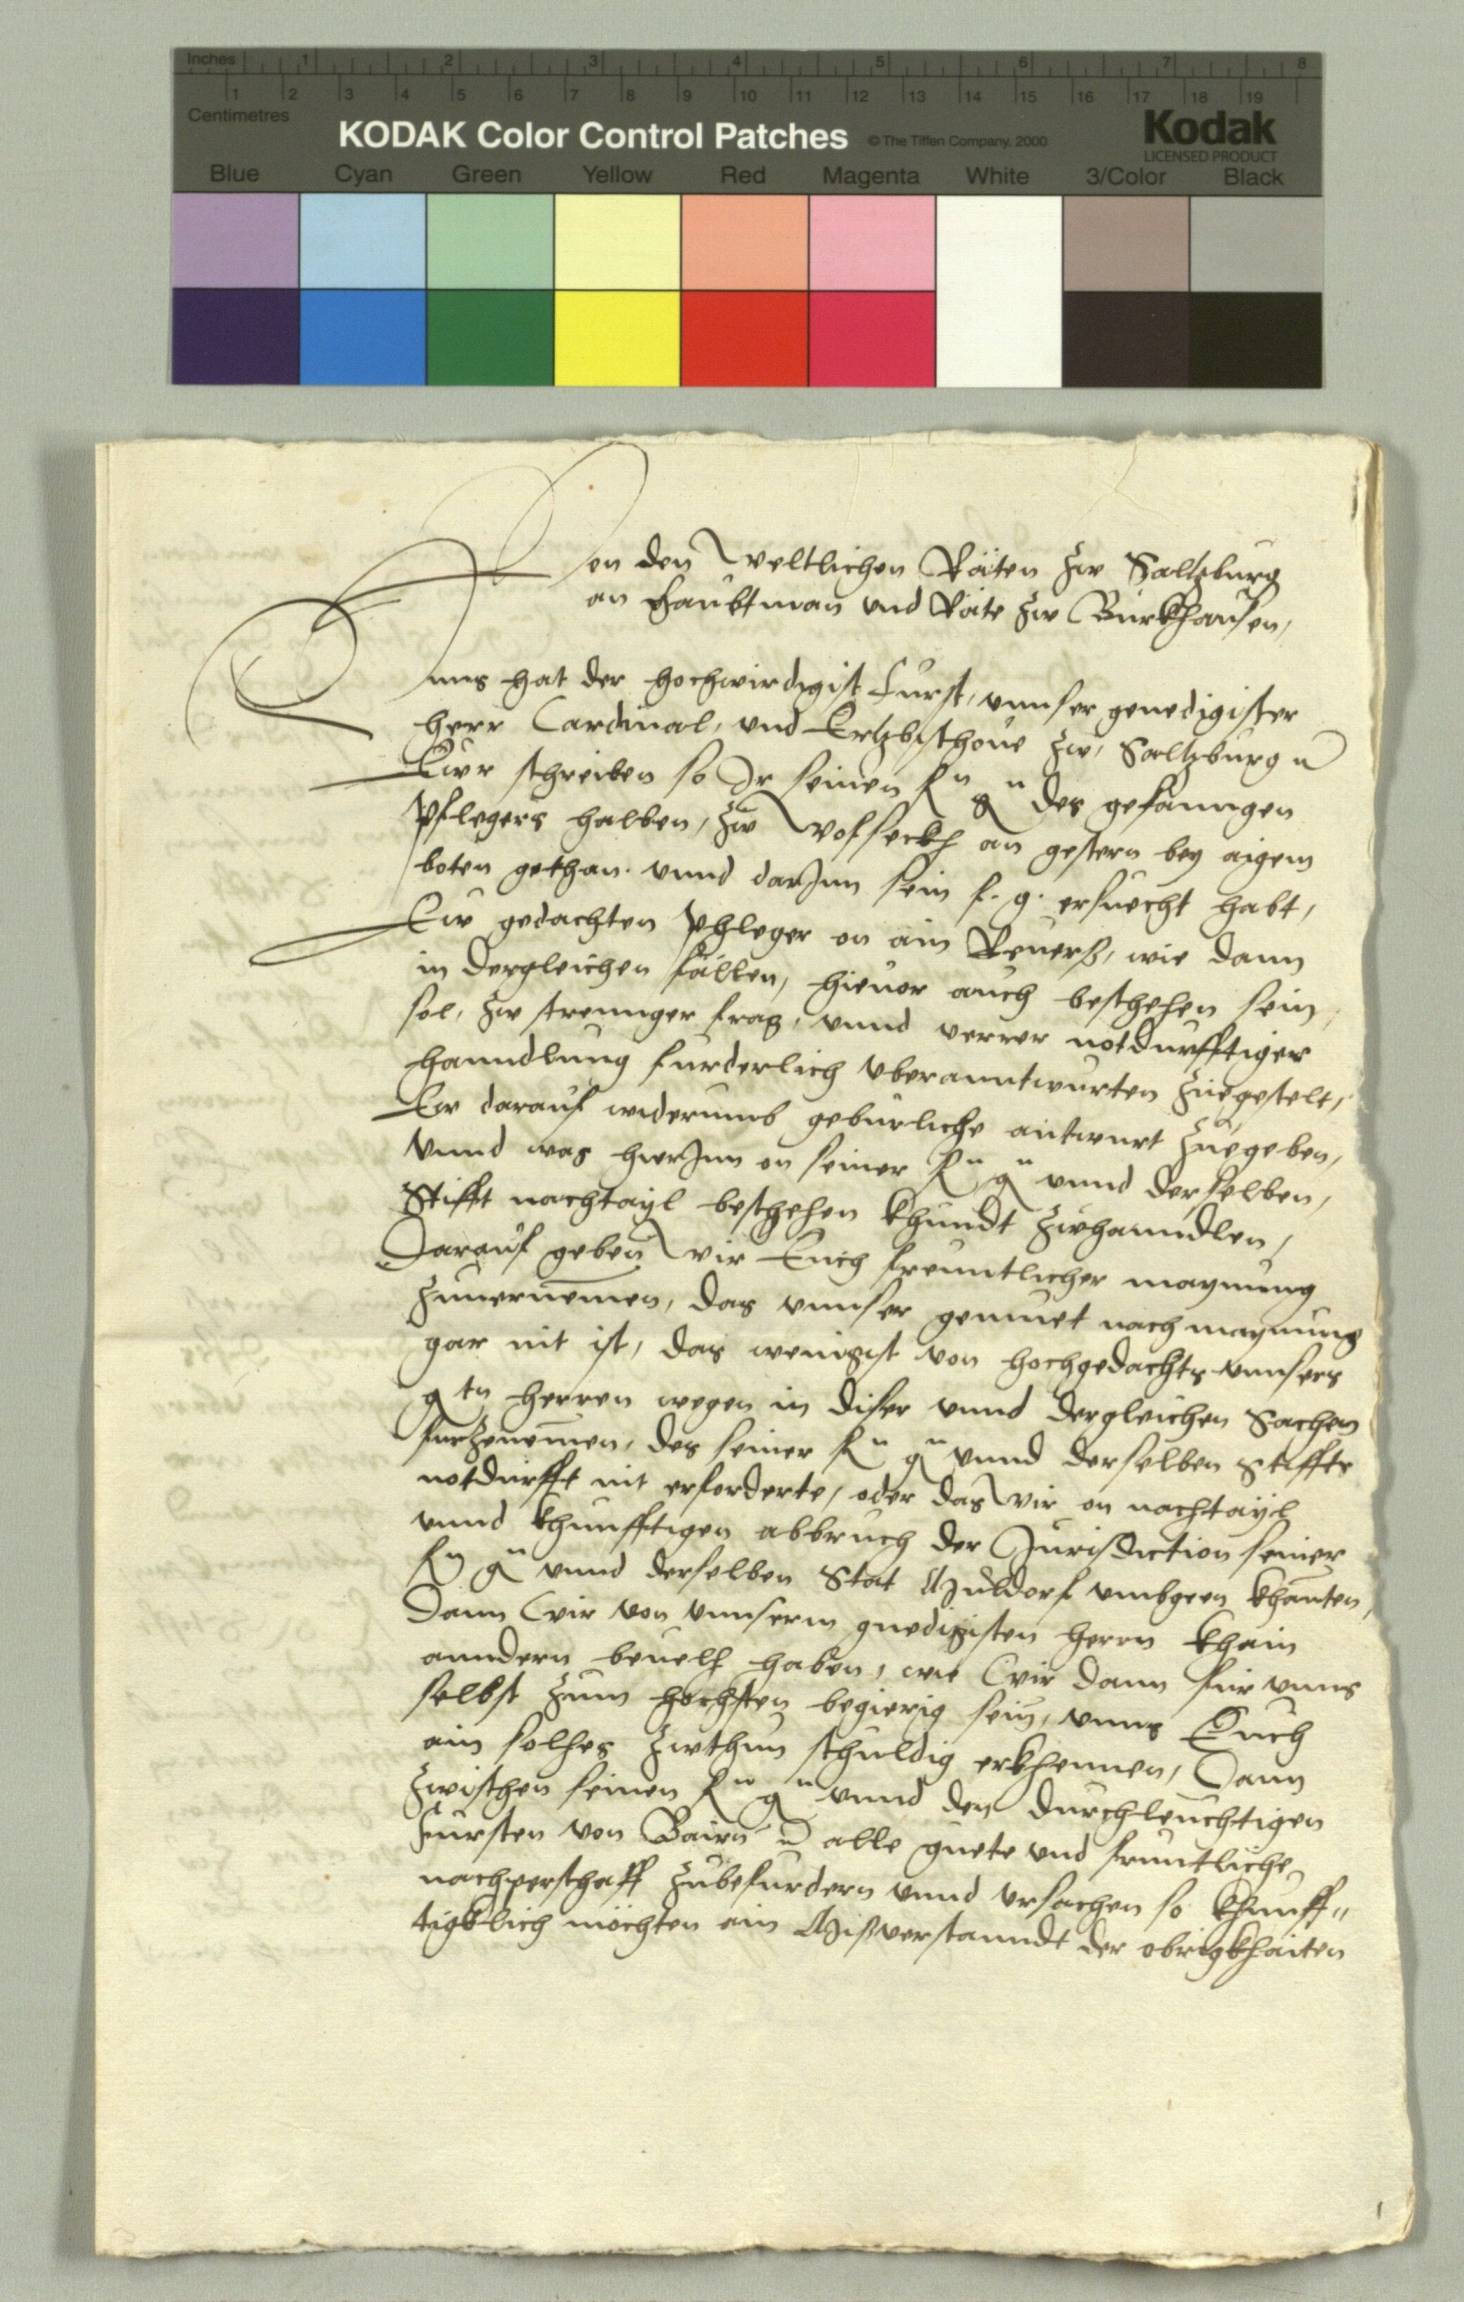 Inches 1 2 3 4 5 6 7 8
1 2 3 4 5 6 7 8 9 10 11 12 13 14 15 16 17 18 19
Centimetres
KODAK Color Control Patches © The Tiffen Company, 2000 Kodak
LICENSED PRODUCT
Blue Cyan Green Yellow Red Magenta White 3/Color Black
Von den weltlichen Räten zw Saltzburg
an haubtman vnd Räte zw Burkhausen,
Vnns hat der hochwirdigist Furst, vnnser genedigister
herr Cardinal, vnd Ertzbischoue zw, Saltzburg
Ewr schreiben so Ir seinen fn gn des gefanngen
pflegers halben, zw an gestern bey aigem
boten gethan. vnnd darJnn sein f. g. ersuecht habt,
Ew gedachten phleger on ain Reuerß, wie dann
in dergleichen fällen, hieuor auch beschehen sein,
sol, zw strennger frag, vnnd verrer notdurfftiger
hanndlung furderlich vberanntwurten zuegestelt,
Ew darauf widerumb geburliche antwurt zuegeben,
vnnd was hierJnn on seiner fn gn vnnd derselben,
Stifft nachtayl beschehen khundt zwhanndlen,
Darauf geben wir Euch freuntlicher maynung
zuuernemen, das vnnser gemuet nach maynung
gar nit ist, das wenigist von hochgedachts vnnsers
gtn herren wegen in diser vnnd dergleichen Sachen
furzenemen, des seiner fn gn vnnd derselben Stiffts
notdurfft nit erforderte, oder das wir on nachtayl
vnnd khunfftigen abbruch der Jurisdiction seiner
fn gn vnnd derselben Stat Muldorf vmbgeen khanten,
Dann wir von vnnserm gnedigisten herrn khain
anndern beuelh haben, wie wir dann fur vnns
selbst zum hochsten begierig sein, vnns Euch
ain solhes zwthun schuldig erkhennen, Dann
zwischen seinen fn gn vnnd den durchleuchtigen
Fursten von Bairn alle guete vnd fruntliche
nachperschafft zubefurdern vnnd vrsachen so khunff„
tigklich möchten ain Mißverstanndt der obrigkhaiten
1